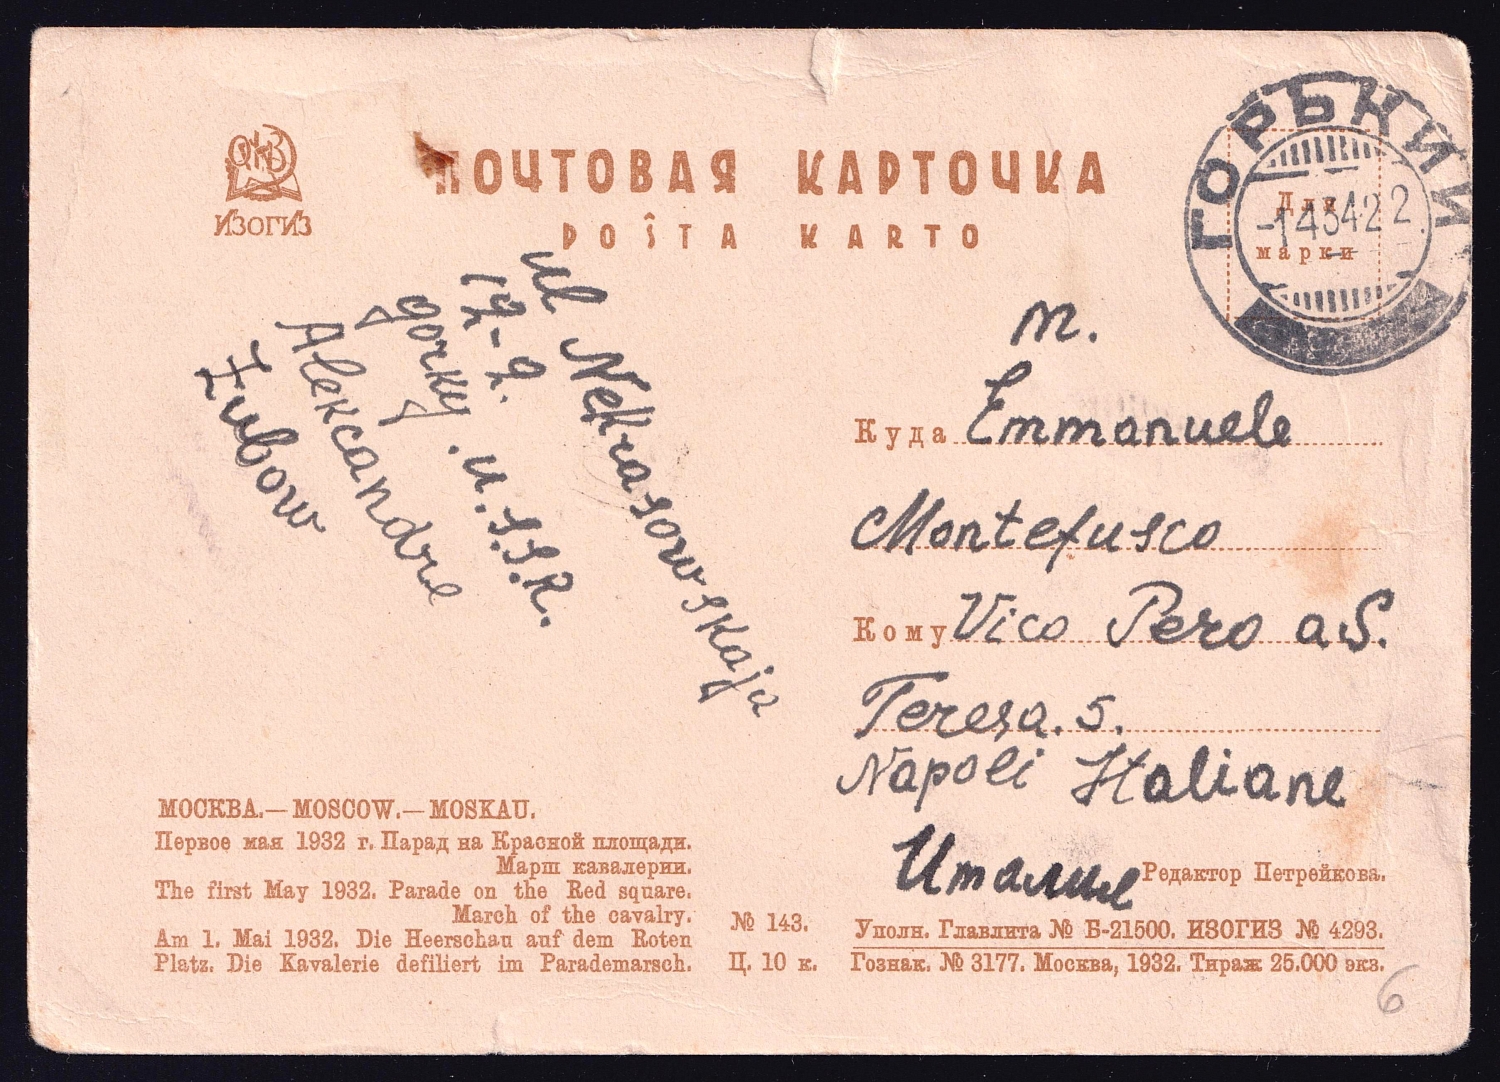 ОГИЗ
ИЗОГИЗ
ПОЧТОВАЯ КАРТОЧКА
POŜTA KARTO
ГОРЬКИЙ
Для
марки
ul Nekrasowskaja
12-2.
gorky. U.S.S.R.
Alekcandre
Zubow
m.
Куда Emmanuele
Montefusco
Кому Vico Pero a S.
Teresa. 5.
Napoli Italiane
Италие
МОСКВА.—MOSCOW.—MOSKAU.
Первое мая 1932 г. Парад на Красной площади.
Марш кавалерии.
The first May 1932. Parade on the Red square.
March of the cavalry.
Am 1. Mai 1932. Die Heerschau auf dem Roten
Platz. Die Kavalerie defiliert im Parademarsch.
№ 143.
Ц. 10 к.
Редактор Петрейкова.
Уполн. Главлита № Б-21500. ИЗОГИЗ № 4293.
Гознак. № 3177. Москва, 1932. Тираж 25.000 экз.
6